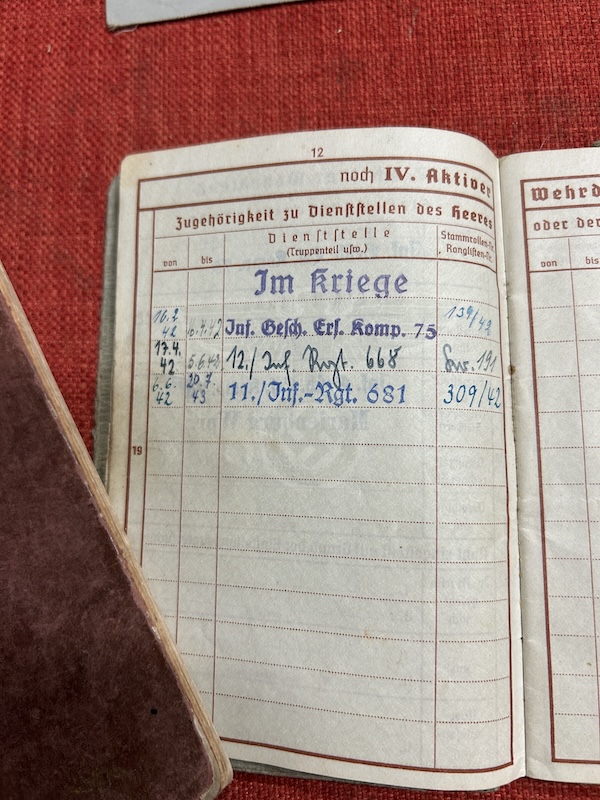 12
noch IV. Aktiver
Zugehörigkeit zu Dienststellen des Heeres
von bis Dienststelle (Truppenteil usw.) Stammrollen-Nr. Ranglisten-Nr.
Im Kriege
16.2. 42 16.4.42 Inf. Gesch. Ers. Komp. 75 139/42
17.4. 42 5.6.42 12./Inf. Rgt. 668 191
6.6. 42 20.7. 43 11./Inf.-Rgt. 681 309/42
19
Wehrd
oder der
von bis